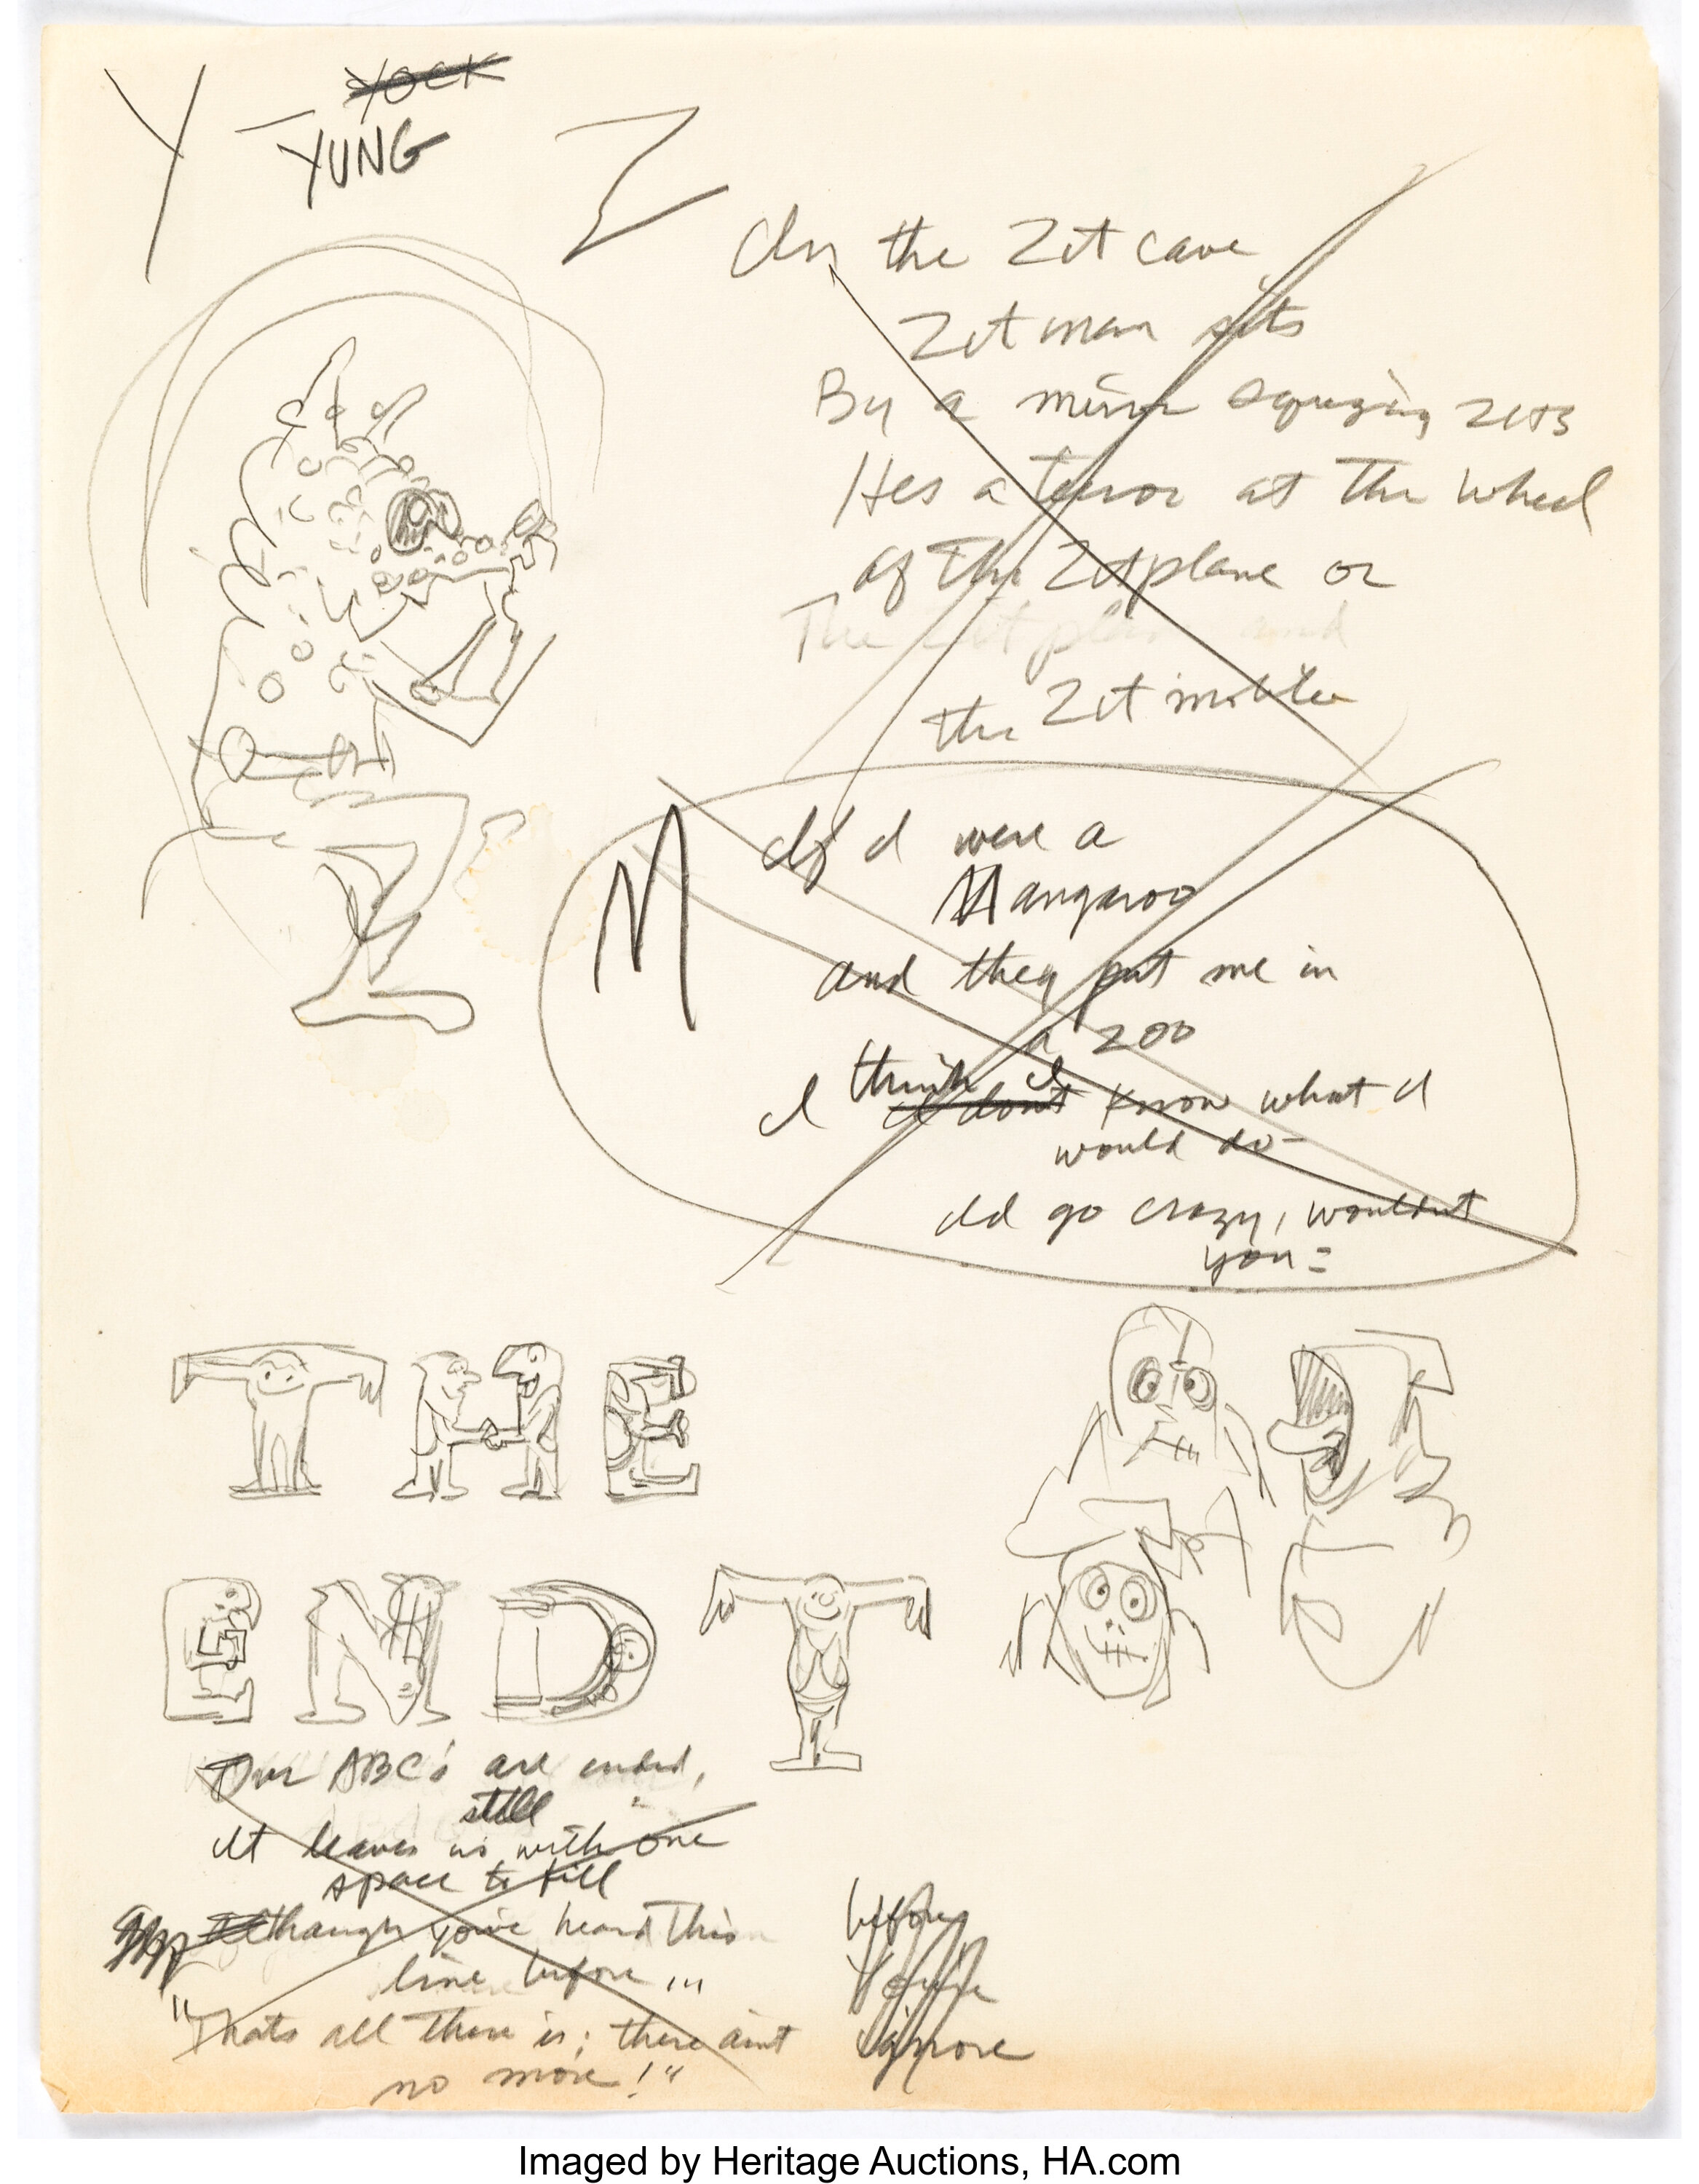 Y - YOCK
YUNG
Z
In the Zit cave
Zit man sits
By a mirror squezing zits
Hes a terror at the wheel
of the Zitplane or
The Zit plane and
the Zit mobile
M
If I were a
Mangaroo
and they put me in
a zoo
I think I
I don't know what I
would do -
Id go crazy, wouldnt
you =
THE
END T
Our ABC's are ended,
still
It leaves us with one
space to fill
although you've heard this
line before ...
"Thats all there is; there aint
no more!"
before
You're
ignore
Imaged by Heritage Auctions, HA.com